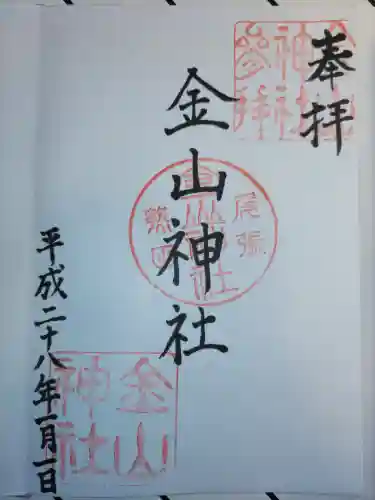 奉拝
金山神社参拝
金山神社
尾張
熱田
金山神社
平成二十八年一月一日
金山神社